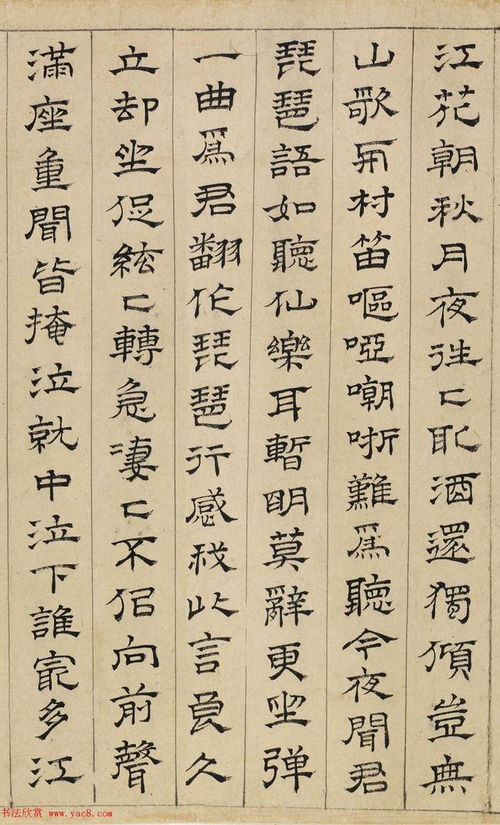 江花朝秋月夜往々取酒還獨傾豈無
山歌與村笛嘔啞嘲哳難爲聽今夜聞君
琵琶語如聽仙樂耳暫明莫辭更坐弹
一曲爲君翻作琵琶行感我此言良久
立却坐促絃々轉急凄々不似向前聲
滿座重聞皆掩泣就中泣下誰最多江
书法欣赏 www.yac8.com